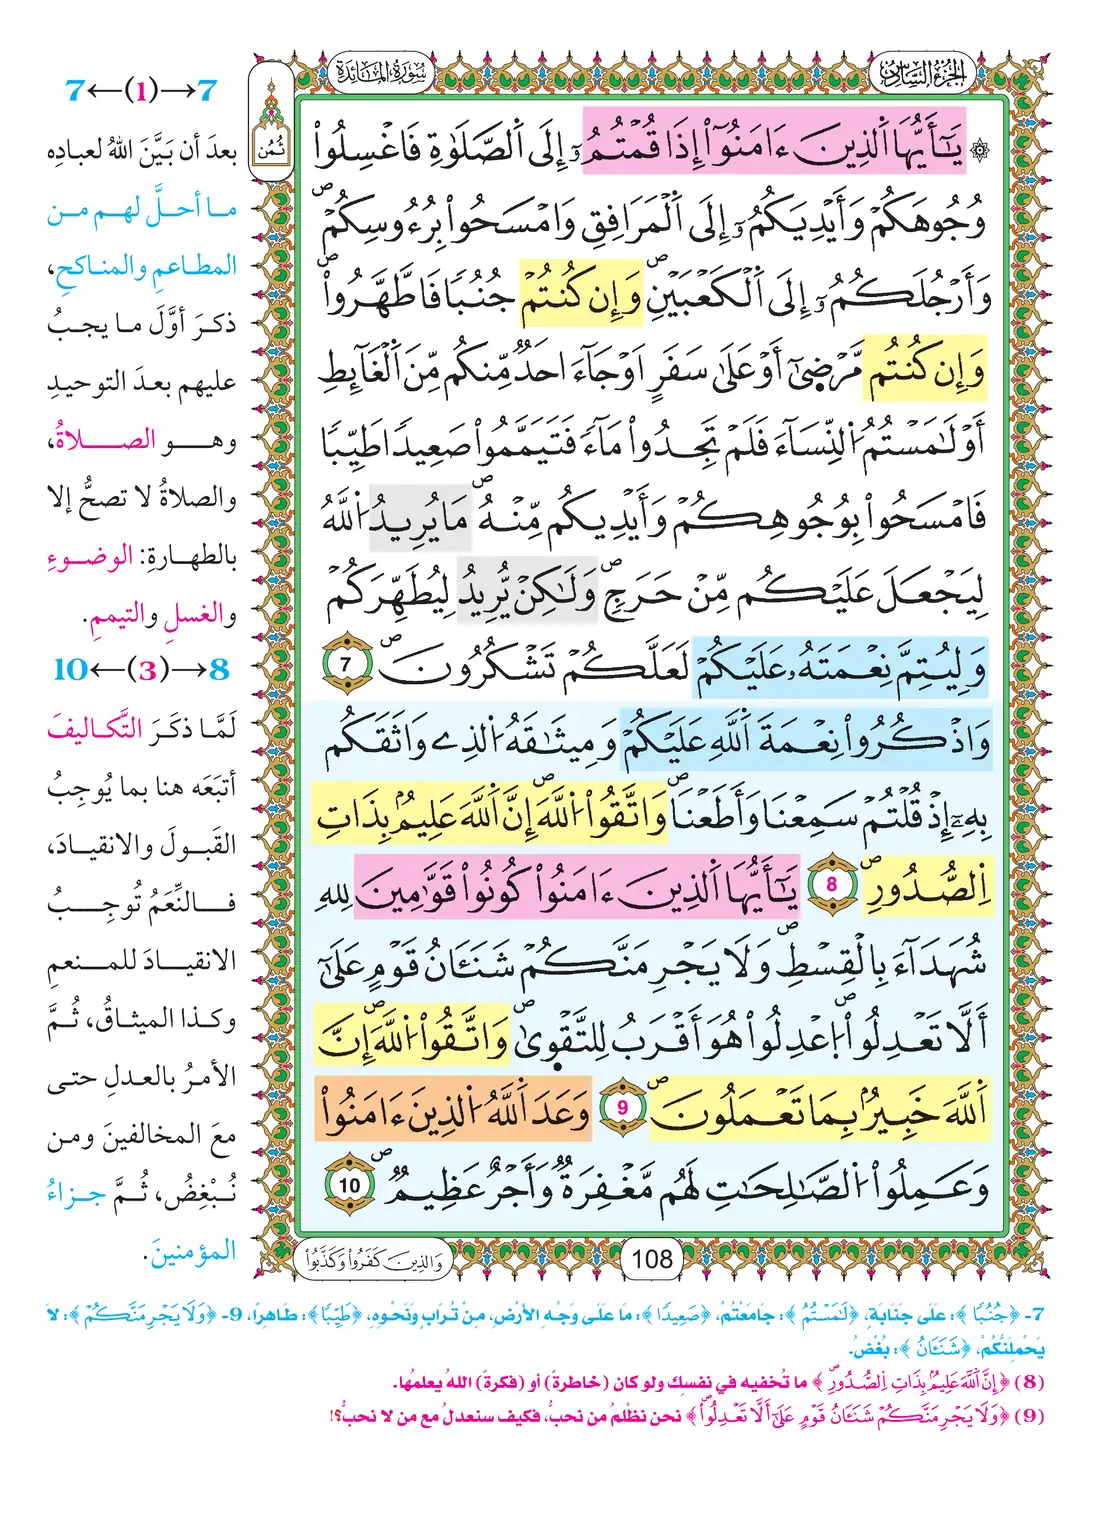 الجزء السادس
سورة المائدة
ثمن
۞ يَٰٓأَيُّهَا اَ۬لذِينَ ءَامَنُوٓاْ إِذَا قُمْتُمُۥٓ إِلَى اَ۬لصَّلَوٰةِ فَاغْسِلُواْ
وُجُوهَكُمْ وَأَيْدِيَكُمُۥٓ إِلَى اَ۬لْمَرَافِقِ وَامْسَحُواْ بِرُءُوسِكُمْ
وَأَرْجُلَكُمُۥٓ إِلَى اَ۬لْكَعْبَيْنِۖ وَإِن كُنتُمْ جُنُبًا فَاطَّهَّرُواْۖ
وَإِن كُنتُم مَّرْض۪يٰٓ أَوْ عَلَىٰ سَفَرٍ اَوْ جَآءَ احَدٌ مِّنكُم مِّنَ اَ۬لْغَآئِطِ
أَوْ لَٰمَسْتُمُ اُ۬لنِّسَآءَ فَلَمْ تَجِدُواْ مَآءً فَتَيَمَّمُواْ صَعِيدًا طَيِّبًا
فَامْسَحُواْ بِوُجُوهِكُمْ وَأَيْدِيكُم مِّنْهُۖ مَا يُرِيدُ اُ۬للَّهُ
لِيَجْعَلَ عَلَيْكُم مِّنْ حَرَجٍۖ وَلَٰكِنْ يُّرِيدُ لِيُطَهِّرَكُمْ
وَلِيُتِمَّ نِعْمَتَهُۥ عَلَيْكُمْ لَعَلَّكُمْ تَشْكُرُونَۖ 7
وَاذْكُرُواْ نِعْمَةَ اَ۬للَّهِ عَلَيْكُمْ وَمِيثَٰقَهُ اُ۬لذِے وَاثَقَكُم
بِهِۦٓ إِذْ قُلْتُمْ سَمِعْنَا وَأَطَعْنَاۖ وَاتَّقُواْ اُ۬للَّهَۖ إِنَّ اَ۬للَّهَ عَلِيمُۢ بِذَاتِ
اِ۬لصُّدُورِۖ 8 يَٰٓأَيُّهَا اَ۬لذِينَ ءَامَنُواْ كُونُواْ قَوَّٰمِينَ لِلهِ
شُهَدَآءَ بِالْقِسْطِۖ وَلَا يَجْرِمَنَّكُمْ شَنَـَٔانُ قَوْمٍ عَلَىٰٓ
أَلَّا تَعْدِلُواْۖ اُ۪عْدِلُواْ هُوَ أَقْرَبُ لِلتَّقْو۪يٰۖ وَاتَّقُواْ اُ۬للَّهَۖ إِنَّ
اَ۬للَّهَ خَبِيرُۢ بِمَا تَعْمَلُونَۖ 9 وَعَدَ اَ۬للَّهُ اُ۬لذِينَ ءَامَنُواْ
وَعَمِلُواْ اُ۬لصَّٰلِحَٰتِ لَهُم مَّغْفِرَةٌ وَأَجْرٌ عَظِيمٌۖ 10
108
وَالذِينَ كَفَرُواْ وَكَذَّبُواْ
7←(1)→7
بعدَ أن بَيَّنَ اللهُ لعبادِه
ما أحلَّ لهم من
المطاعمِ والمناكحِ،
ذكرَ أوَّلَ ما يجبُ
عليهم بعدَ التوحيدِ
وهو الصلاةُ،
والصلاةُ لا تصحُّ إلا
بالطهارةِ: الوضوءِ
والغسلِ والتيممِ.
10←(3)→8
لَمَّا ذكَرَ التَّكاليفَ
أتبَعَه هنا بما يُوجِبُ
القَبولَ والانقيادَ،
فالنِّعَمُ تُوجِبُ
الانقيادَ للمنعمِ
وكذا الميثاقُ، ثُمَّ
الأمرُ بالعدلِ حتى
معَ المخالفينَ ومن
نُبْغِضُ، ثُمَّ جزاءُ
المؤمنينَ.
7- ﴿جُنُبًا﴾: عَلَى جَنَابَةٍ، ﴿لَٰمَسْتُمُ﴾: جَامَعْتُمْ، ﴿صَعِيدًا﴾: مَا عَلَى وَجْهِ الأَرْضِ، مِنْ تُرَابٍ وَنَحْوِهِ، ﴿طَيِّبًا﴾: طَاهِرًا، 9- ﴿وَلَا يَجْرِمَنَّكُمْ﴾: لَا
يَحْمِلَنَّكُمْ، ﴿شَنَـَٔانُ﴾: بُغْضُ.
(8) ﴿إِنَّ اَ۬للَّهَ عَلِيمُۢ بِذَاتِ اِ۬لصُّدُورِۖ﴾ ما تُخفيه في نفسِك ولو كان (خاطرة) أو (فكرة) اللهُ يعلمُها.
(9) ﴿وَلَا يَجْرِمَنَّكُمْ شَنَـَٔانُ قَوْمٍ عَلَىٰٓ أَلَّا تَعْدِلُواْۖ﴾ نحن نظْلِمُ من نحبُّ، فكيف سنعدلُ مع من لا نحبُّ؟!